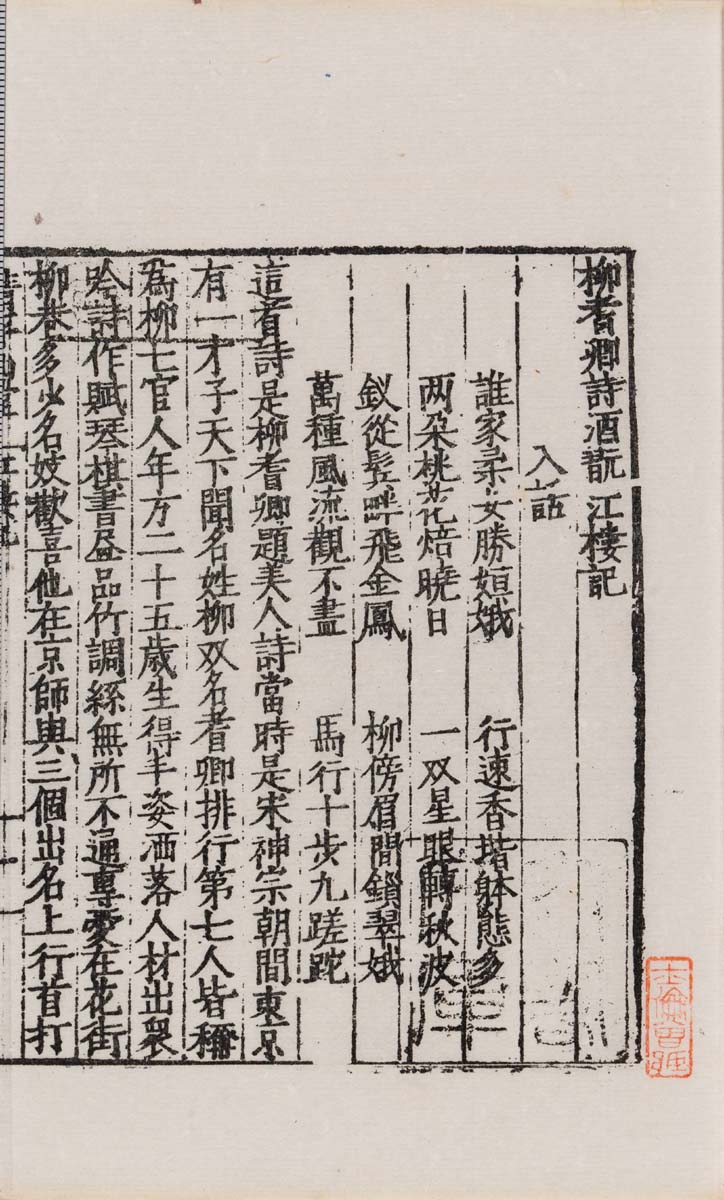 柳耆卿詩酒翫江樓記
入話
誰家柔女勝姮娥 行速香堦躰態多
两朶桃花焙曉日 一双星眼轉秋波
釵從鬂畔飛金鳳 柳傍眉間鎖翠娥
萬種風流觀不盡 馬行十步九蹉跎
這首詩是柳耆卿題美人詩當時是宋神宗朝間東京
有一才子天下聞名姓柳双名耆卿排行第七人皆稱
爲柳七官人年方二十五歲生得丰姿洒落人材出衆
吟詩作賦琴棋書畫品竹調絲無所不通專愛在花街
柳巷多少名妓歡喜他在京師與三個出名上行首打